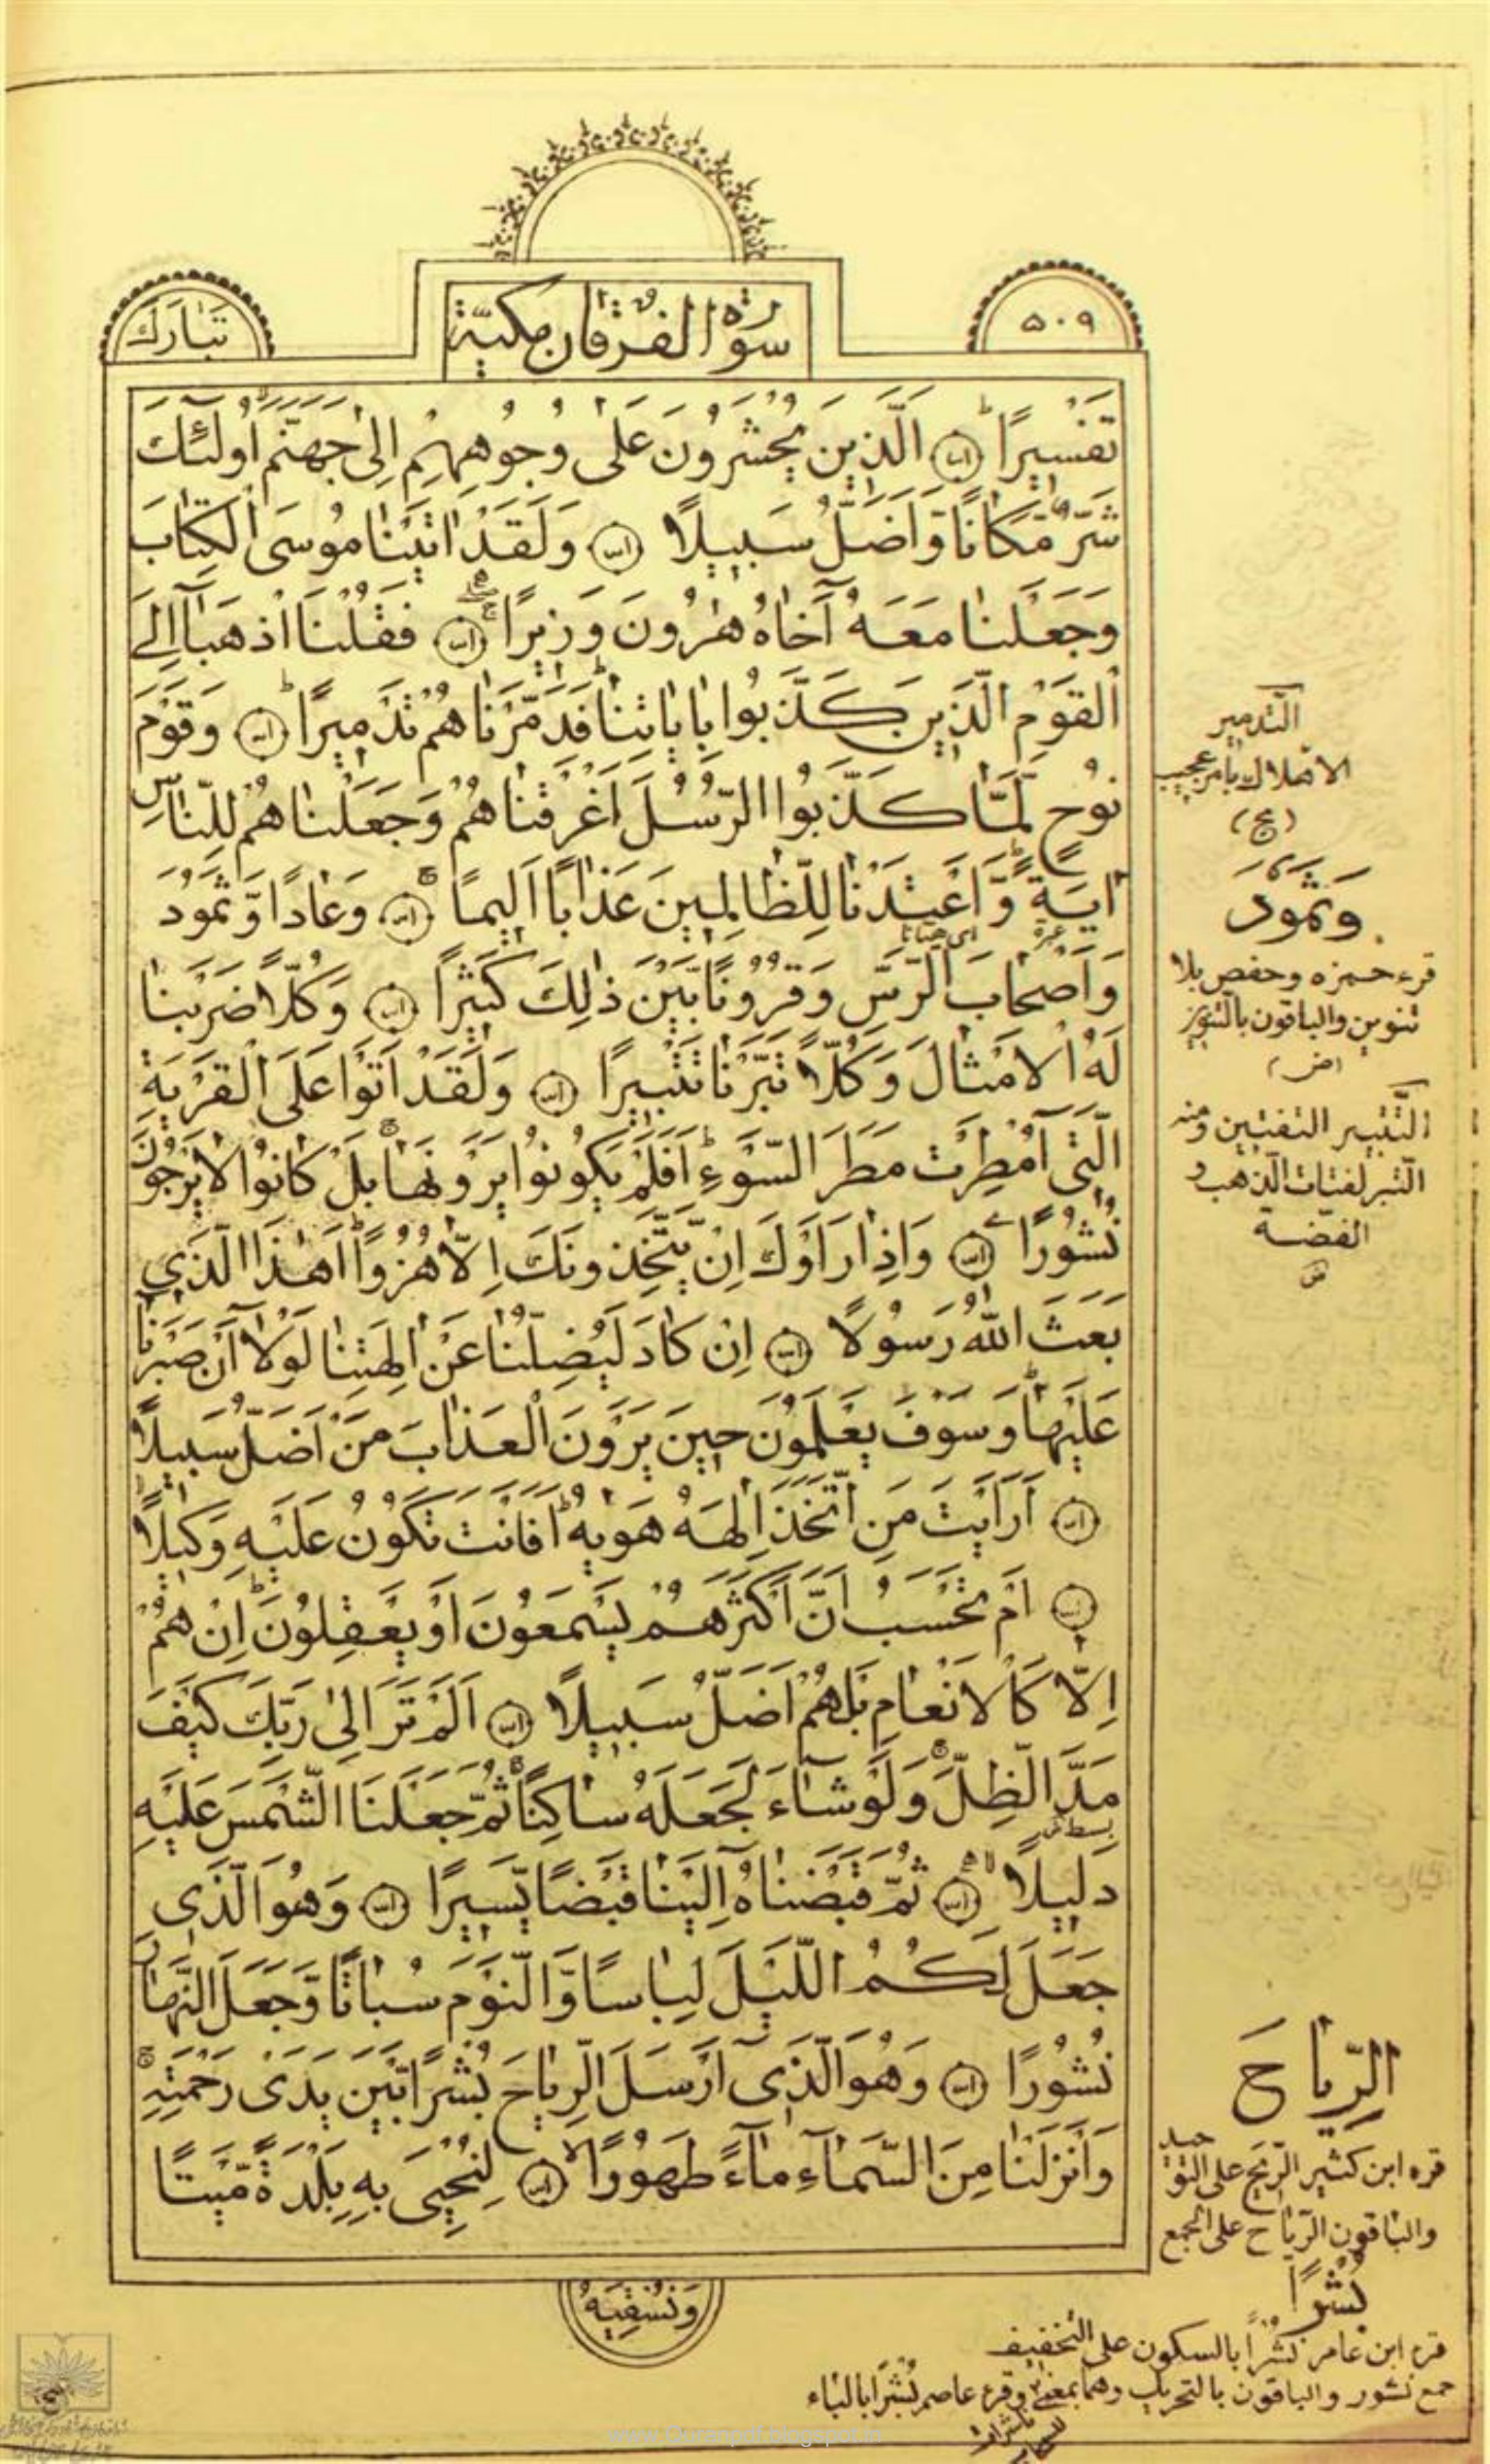 تبارك
سورة الفرقان مكية
٥٠٩
تَفْسِيرًا الَّذِينَ يُحْشَرُونَ عَلٰى وُجُوهِهِمْ اِلٰى جَهَنَّمَ اُولٰٓئِكَ
شَرٌّ مَّكَانًا وَّاَضَلُّ سَبِيلًا وَلَقَدْ اٰتَيْنَا مُوسَى الْكِتَابَ
وَجَعَلْنَا مَعَهُ اَخَاهُ هٰرُونَ وَزِيرًا فَقُلْنَا اذْهَبَا اِلَى
الْقَوْمِ الَّذِينَ كَذَّبُوا بِاٰيَاتِنَا فَدَمَّرْنَاهُمْ تَدْمِيرًا وَقَوْمَ
نُوحٍ لَّمَّا كَذَّبُوا الرُّسُلَ اَغْرَقْنَاهُمْ وَجَعَلْنَاهُمْ لِلنَّاسِ
اٰيَةً وَّاَعْتَدْنَا لِلظَّالِمِينَ عَذَابًا اَلِيمًا وَعَادًا وَّثَمُودَ
وَاَصْحَابَ الرَّسِّ وَقُرُونًا بَيْنَ ذٰلِكَ كَثِيرًا وَكُلًّا ضَرَبْنَا
لَهُ الْاَمْثَالَ وَكُلًّا تَبَّرْنَا تَتْبِيرًا وَلَقَدْ اَتَوْا عَلَى الْقَرْيَةِ
الَّتِى اُمْطِرَتْ مَطَرَ السَّوْءِ اَفَلَمْ يَكُونُوا يَرَوْنَهَا بَلْ كَانُوا لَا يَرْجُونَ
نُشُورًا وَاِذَا رَاَوْكَ اِنْ يَّتَّخِذُونَكَ اِلَّا هُزُوًا اَهٰذَا الَّذِي
بَعَثَ اللّٰهُ رَسُولًا اِنْ كَادَ لَيُضِلُّنَا عَنْ اٰلِهَتِنَا لَوْلَا اَنْ صَبَرْنَا
عَلَيْهَا وَسَوْفَ يَعْلَمُونَ حِينَ يَرَوْنَ الْعَذَابَ مَنْ اَضَلُّ سَبِيلًا
اَرَاَيْتَ مَنِ اتَّخَذَ اِلٰهَهُ هَوٰيهُ اَفَاَنْتَ تَكُونُ عَلَيْهِ وَكِيلًا
اَمْ تَحْسَبُ اَنَّ اَكْثَرَهُمْ يَسْمَعُونَ اَوْ يَعْقِلُونَ اِنْ هُمْ
اِلَّا كَالْاَنْعَامِ بَلْ هُمْ اَضَلُّ سَبِيلًا اَلَمْ تَرَ اِلٰى رَبِّكَ كَيْفَ
مَدَّ الظِّلَّ وَلَوْ شَآءَ لَجَعَلَهُ سَاكِنًا ثُمَّ جَعَلْنَا الشَّمْسَ عَلَيْهِ
دَلِيلًا ثُمَّ قَبَضْنَاهُ اِلَيْنَا قَبْضًا يَّسِيرًا وَهُوَ الَّذِى
جَعَلَ لَكُمُ اللَّيْلَ لِبَاسًا وَّالنَّوْمَ سُبَاتًا وَّجَعَلَ النَّهَارَ
نُشُورًا وَهُوَ الَّذِى اَرْسَلَ الرِّيَاحَ بُشْرًا بَيْنَ يَدَىْ رَحْمَتِهِ
وَاَنْزَلْنَا مِنَ السَّمَآءِ مَآءً طَهُورًا لِنُحْيِىَ بِهِ بَلْدَةً مَّيْتًا
وَنُسْقِيَهُ
التدمير
الاهلاك بامر عجيب
(ع)
وثمود
قرء حمزه وحفص بلا
تنوين والباقون بالتنوين
(ض)
التتبير التفتيت ومنه
التبر لفتات الذهب و
الفضة
الرِّيَاحَ
قرء ابن كثير الريح على التوحيد
والباقون الرياح على الجمع
بُشْرًا
قرء ابن عامر نُشْرًا بالسكون على التخفيف
جمع نشور والباقون بالتحريك وهما بمعنى وقرء عاصم بُشْرًا بالباء
www.Quranpdf.blogspot.in